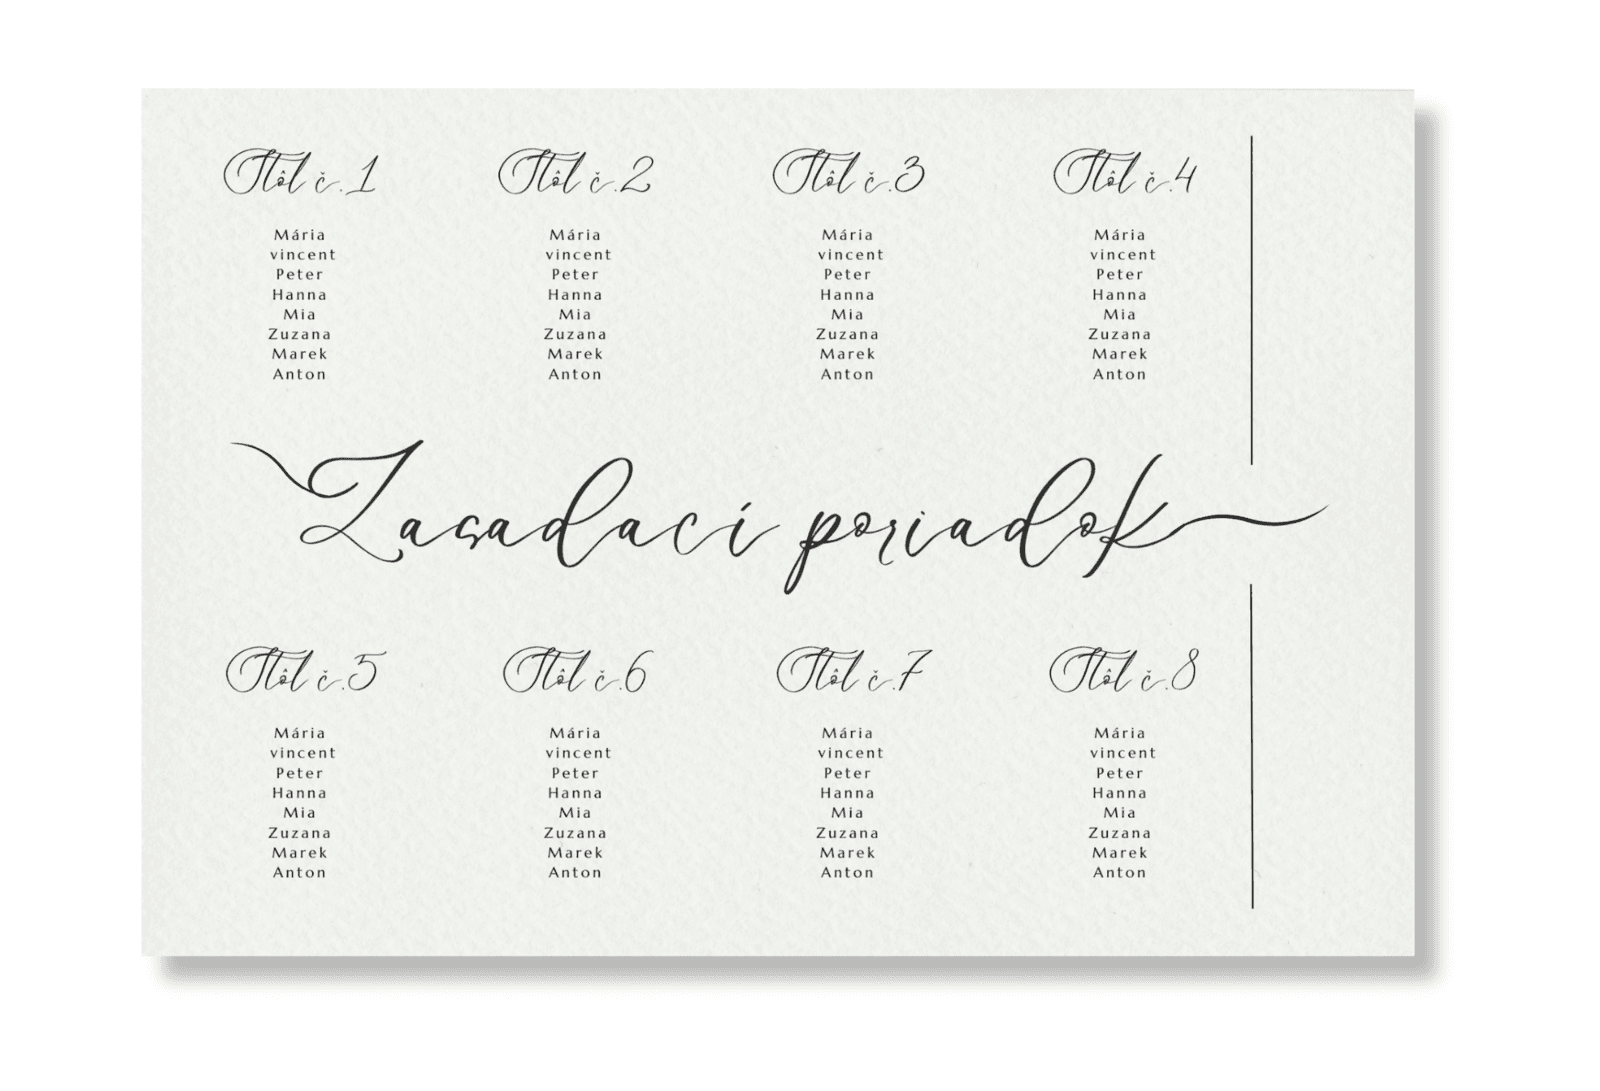 Stôl č.1
Mária
vincent
Peter
Hanna
Mia
Zuzana
Marek
Anton
Stôl č.2
Mária
vincent
Peter
Hanna
Mia
Zuzana
Marek
Anton
Stôl č.3
Mária
vincent
Peter
Hanna
Mia
Zuzana
Marek
Anton
Stôl č.4
Mária
vincent
Peter
Hanna
Mia
Zuzana
Marek
Anton
Zasadací poriadok
Stôl č.5
Mária
vincent
Peter
Hanna
Mia
Zuzana
Marek
Anton
Stôl č.6
Mária
vincent
Peter
Hanna
Mia
Zuzana
Marek
Anton
Stôl č.7
Mária
vincent
Peter
Hanna
Mia
Zuzana
Marek
Anton
Stôl č.8
Mária
vincent
Peter
Hanna
Mia
Zuzana
Marek
Anton